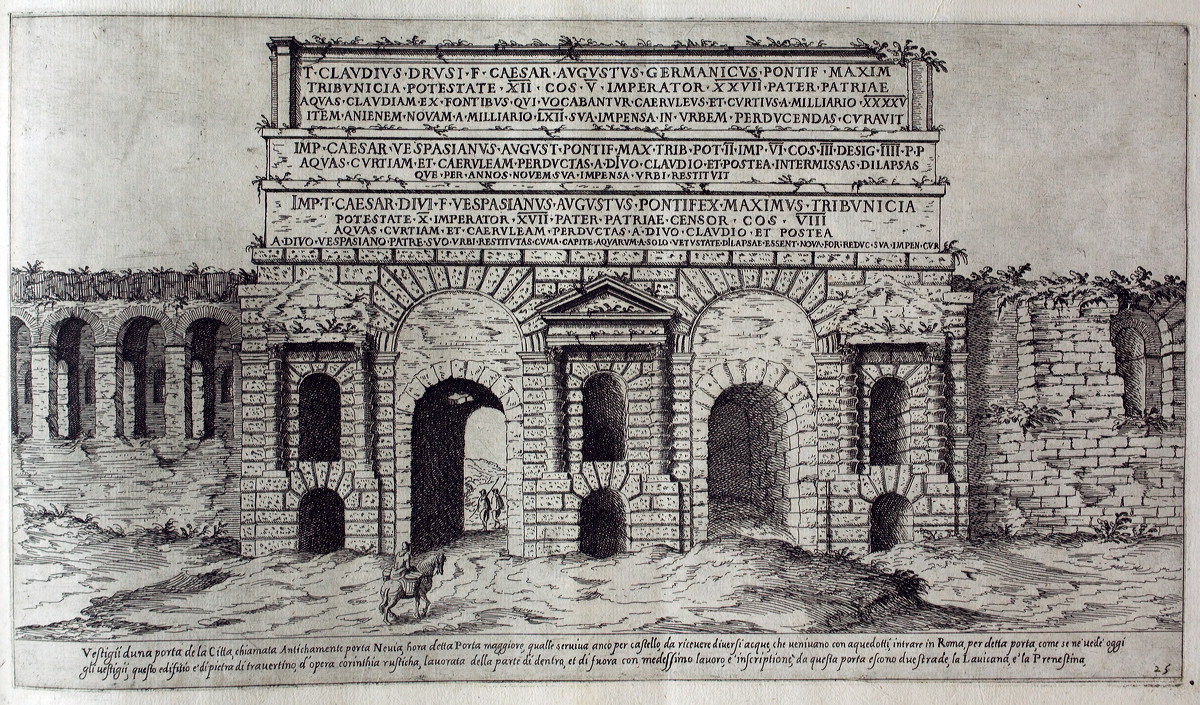 T·CLAVDIVS·DRVSI·F·CAESAR·AVGVSTVS·GERMANICVS·PONTIF·MAXIM
TRIBVNICIA·POTESTATE·XII·COS·V·IMPERATOR·XXVII·PATER·PATRIAE
AQVAS·CLAVDIAM·EX·FONTIBVS·QVI·VOCABANTVR·CAERVLEVS·ET·CVRTIVS·A·MILLIARIO·XXXXV
ITEM·ANIENEM·NOVAM·A·MILLIARIO·LXII·SVA·IMPENSA·IN·VRBEM·PERDVCENDAS·CVRAVIT
IMP·CAESAR·VESPASIANVS·AVGVST·PONTIF·MAX·TRIB·POT·II·IMP·VI·COS·III·DESIG·IIII·P·P
AQVAS·CVRTIAM·ET·CAERVLEAM·PERDVCTAS·A·DIVO·CLAVDIO·ET·POSTEA·INTERMISSAS·DILAPSAS
QVE·PER·ANNOS·NOVEM·SVA·IMPENSA·VRBI·RESTITVIT
IMP·T·CAESAR·DIVI·F·VESPASIANVS·AVGVSTVS·PONTIFEX·MAXIMVS·TRIBVNICIA
POTESTATE·X·IMPERATOR·XVII·PATER·PATRIAE·CENSOR·COS·VIII
AQVAS·CVRTIAM·ET·CAERVLEAM·PERDVCTAS·A·DIVO·CLAVDIO·ET·POSTEA
A·DIVO·VESPASIANO·PATRE·SVO·VRBI·RESTITVTAS·CVMA·CAPITE·AQVARVM·A·SOLO·VETVSTATE·DILAPSAE·ESSENT·NOVA·FOR·REDVC·SVA·IMPEN·CVR
Vestigii d'una porta de la Citta, chiamata Antichamente porta Nevia, hora detta Porta maggiore, qualle serviua anco per castello da ricevere diversi acque, che venivano con aquedotti, intrare in Roma, per detta porta, come se ne vede oggi
gli vestigij, questo edifitio e di pietra di travertino d'opera corinthia rusticha, lavorata della parte di dentro, et di fuora con medessimo lavoro, e inscriptione, da questa porta escono due strade, la Lavicana, e la Prenestina
25